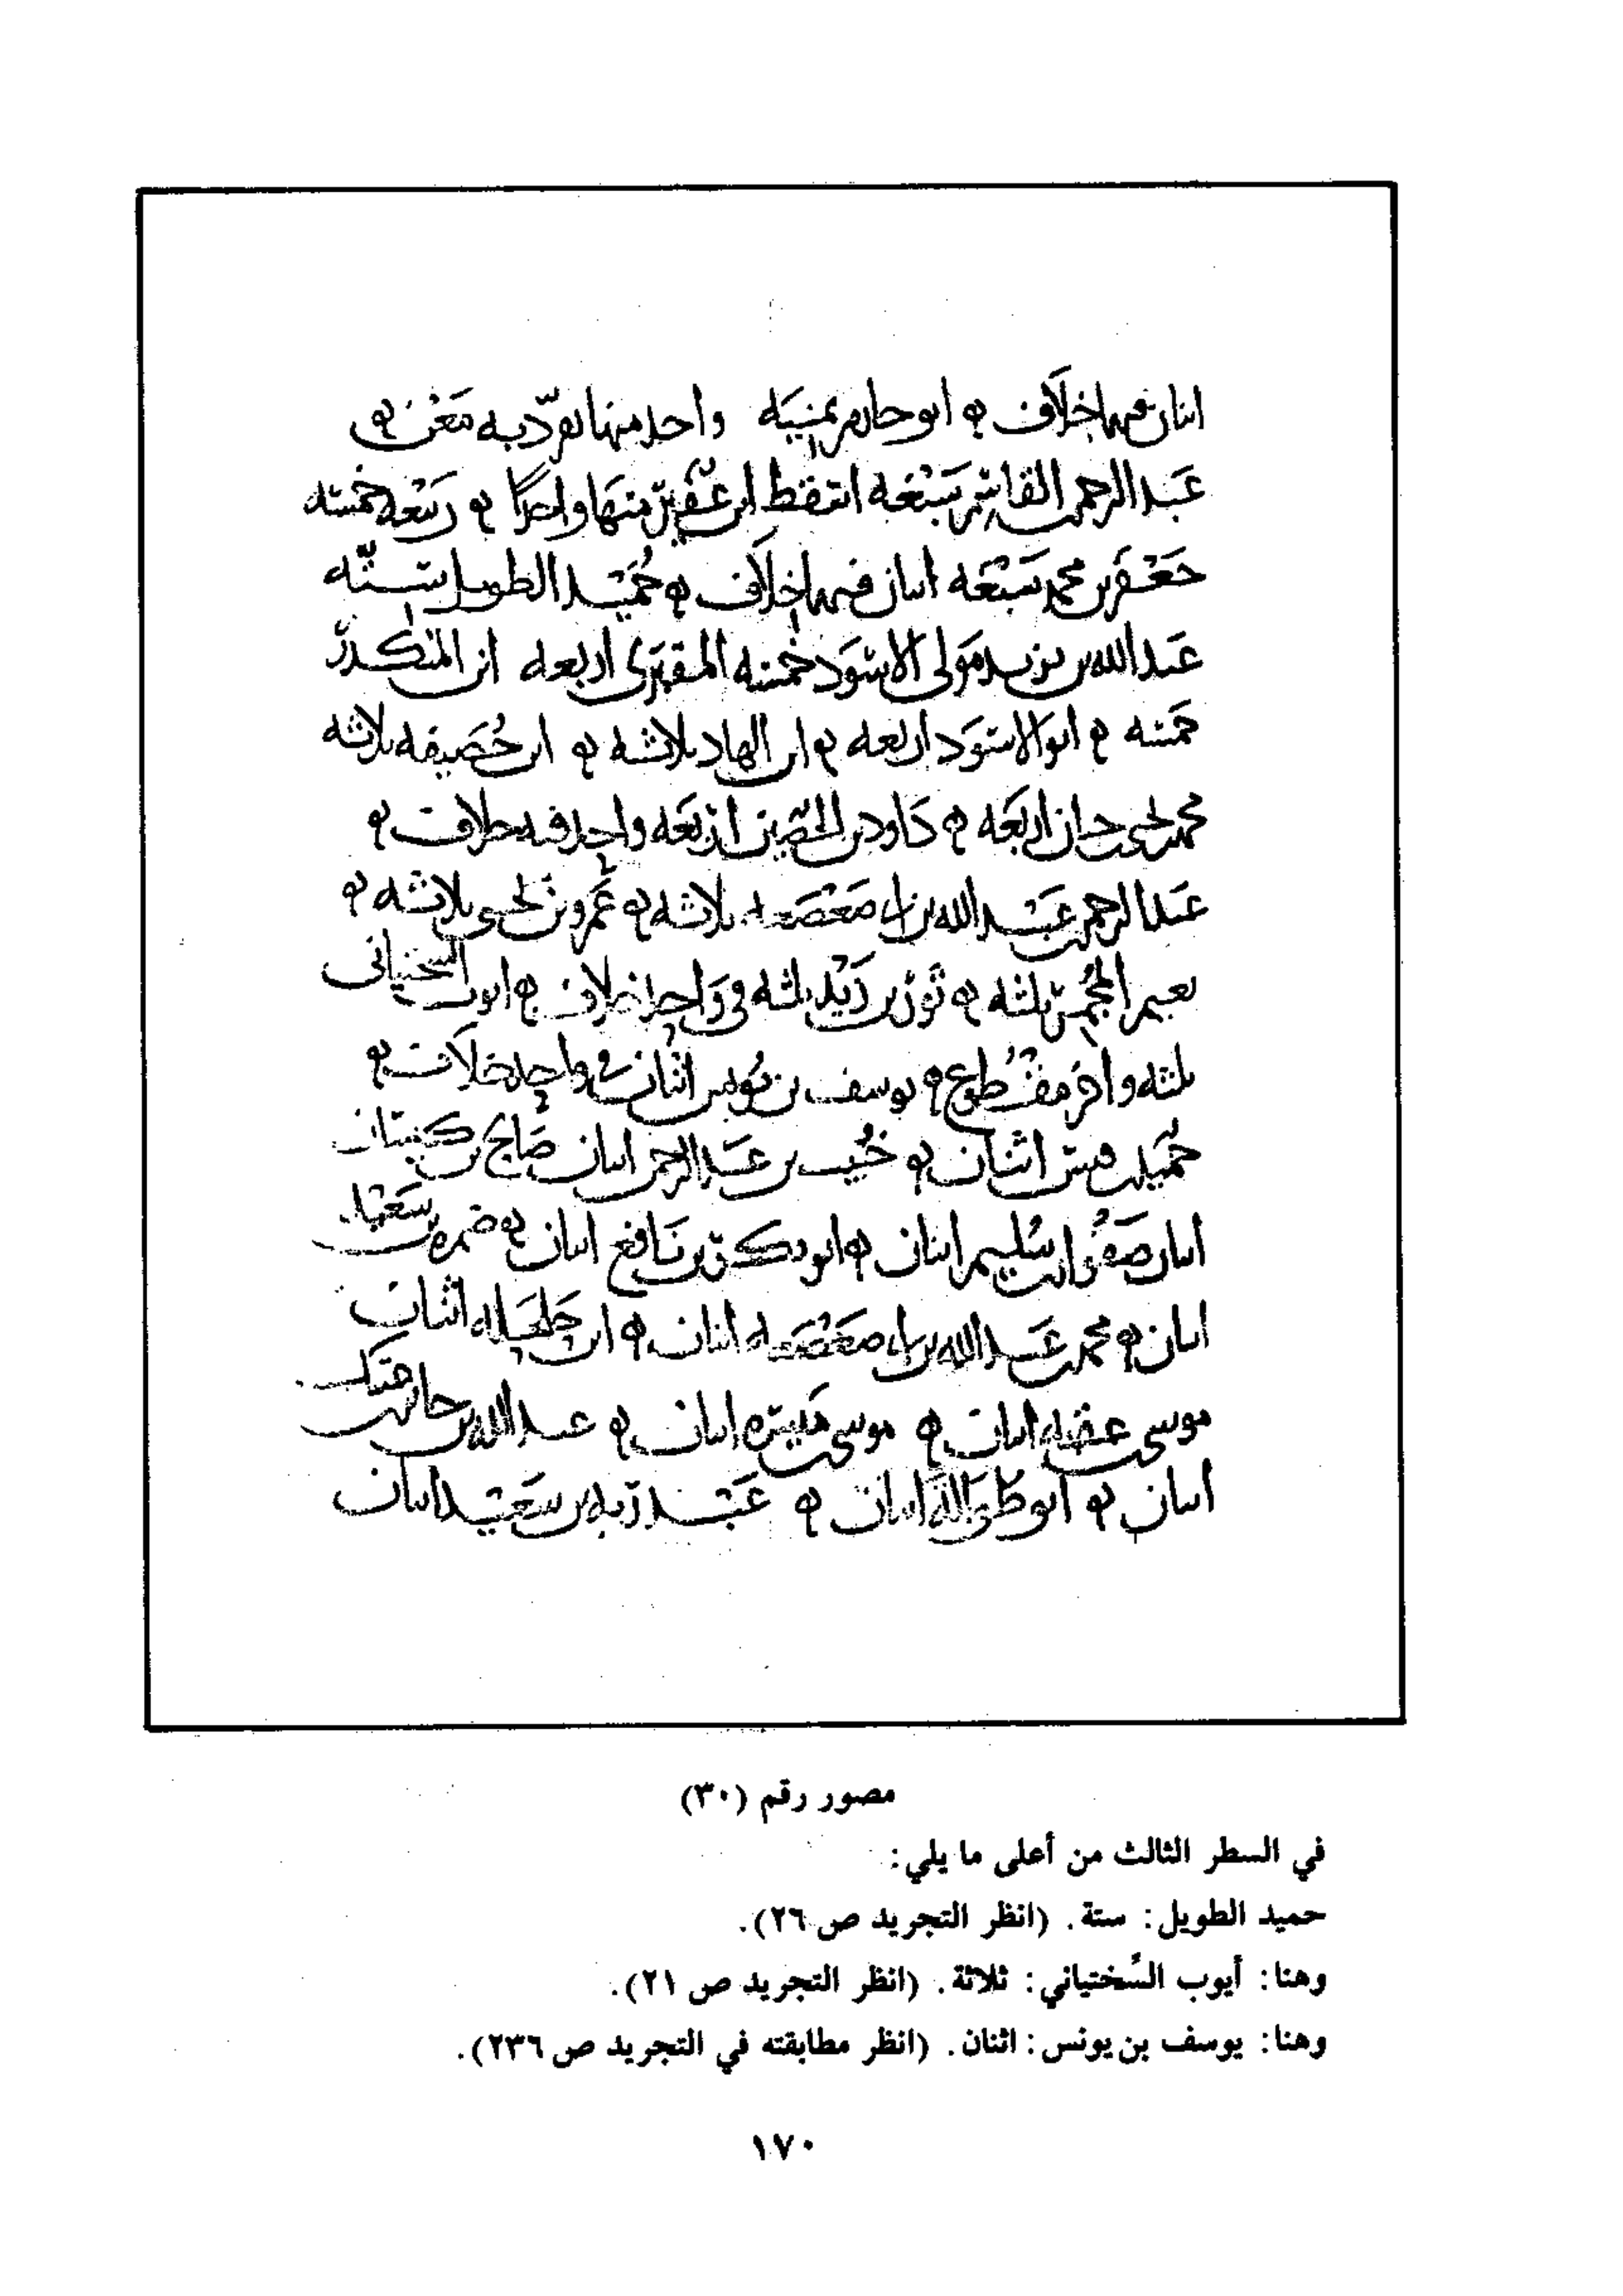 اثنان فيهما خلاف ابو حازم ثمنيه واحد منها تفرد به معن
عبد الرحمن القاسم سبعه اسقط ابن عفير منها واحدا ربيعه خمسه
جعفر بن محمد سبعه اثنان فيهما خلاف حميد الطويل ستة
عبد الله بن يزيد مولى الاسود خمسه المقبري اربعه ابن المنكدر
خمسه ابو الاسود اربعه ابن الهاد ثلاثه ابن خصيفه ثلاثه
محمد بن يحيى بن حبان اربعه داود بن الحصين اربعه واحد فيه خلاف
عبد الرحمن بن عبد الله بن ابي صعصعه ثلاثه عمرو بن يحيى ثلاثه
نعيم المجمر ثلثه ثور بن زيد ثلثه في واحد خلاف ايوب السختياني
ثلثه واخر مقطوع يوسف بن يونس اثنان في واحد خلاف
حميد بن قيس اثنان خبيب بن عبد الرحمن اثنان صالح بن كيسان
اثنان صفوان بن سليم اثنان ابو بكر بن نافع اثنان ضمره بن سعيد
اثنان محمد بن عبد الله بن ابي صعصعه اثنان ابن حلحله اثنان
موسى بن عقبه اثنان موسى بن ميسره اثنان عبد الله بن جابر بن عتيك
اثنان ابو طواله اثنان عبد ربه بن سعيد اثنان
مصور رقم (٣٠)
في السطر الثالث من أعلى ما يلي:
حميد الطويل: ستة. (انظر التجريد ص ٢٦).
وهنا: أيوب السَّختياني: ثلاثة. (انظر التجريد ص ٢١).
وهنا: يوسف بن يونس: اثنان. (انظر مطابقته في التجريد ص ٢٣٦).
١٧٠